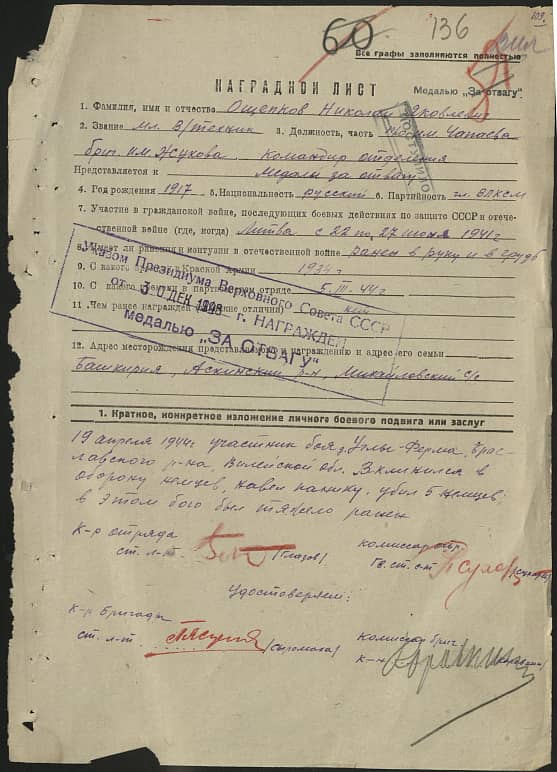 109.
60 136
Все графы заполняются полностью
НАГРАДНОЙ ЛИСТ Медалью „За отвагу"
1. Фамилия, имя и отчество Ощепков Николай Яковлевич
2. Звание мл. в/техник 3. Должность, часть им. Чапаева
бриг. им. Жукова. Командир отделения
Представляется к Медаль за отвагу
4. Год рождения 1917 5. Национальность русский 6. Партийность чл. ВЛКСМ
7. Участие в гражданской войне, последующих боевых действиях по защите СССР и отече-
ственной войне (где, когда) Литва с 22 по 27 июня 1941 г
8. Имеет ли ранения и контузии в отечественной войне ранен в руку и в грудь
9. С какого в Красной Армии 1934 г
10. С какого в партизанском отряде 5. III. 44 г
11. Чем ранее награжден (отличия)
Указом Президиума Верховного Совета СССР
от 30 ДЕК 1948 г. НАГРАЖДЕН
медалью „ЗА ОТВАГУ"
12. Адрес месторождения представляемого к награждению и адрес его семьи
Башкирия, Аскинский р-н, Михайловский с/с
1. Краткое, конкретное изложение личного боевого подвига или заслуг
19 апреля 1944 г участник боя Углы-Ферма, Брас-
лавского р-на, Вилейской обл. Вклинился в
оборону немцев, навел панику, убил 5 немцев,
в этом бою был тяжело ранен
К-р отряда Комиссар отр.
ст. л-т. (Глазов) Гв. ст. с-т
Удостоверяем:
К-р Бригады Комиссар бриг.
ст. л-т. к-н